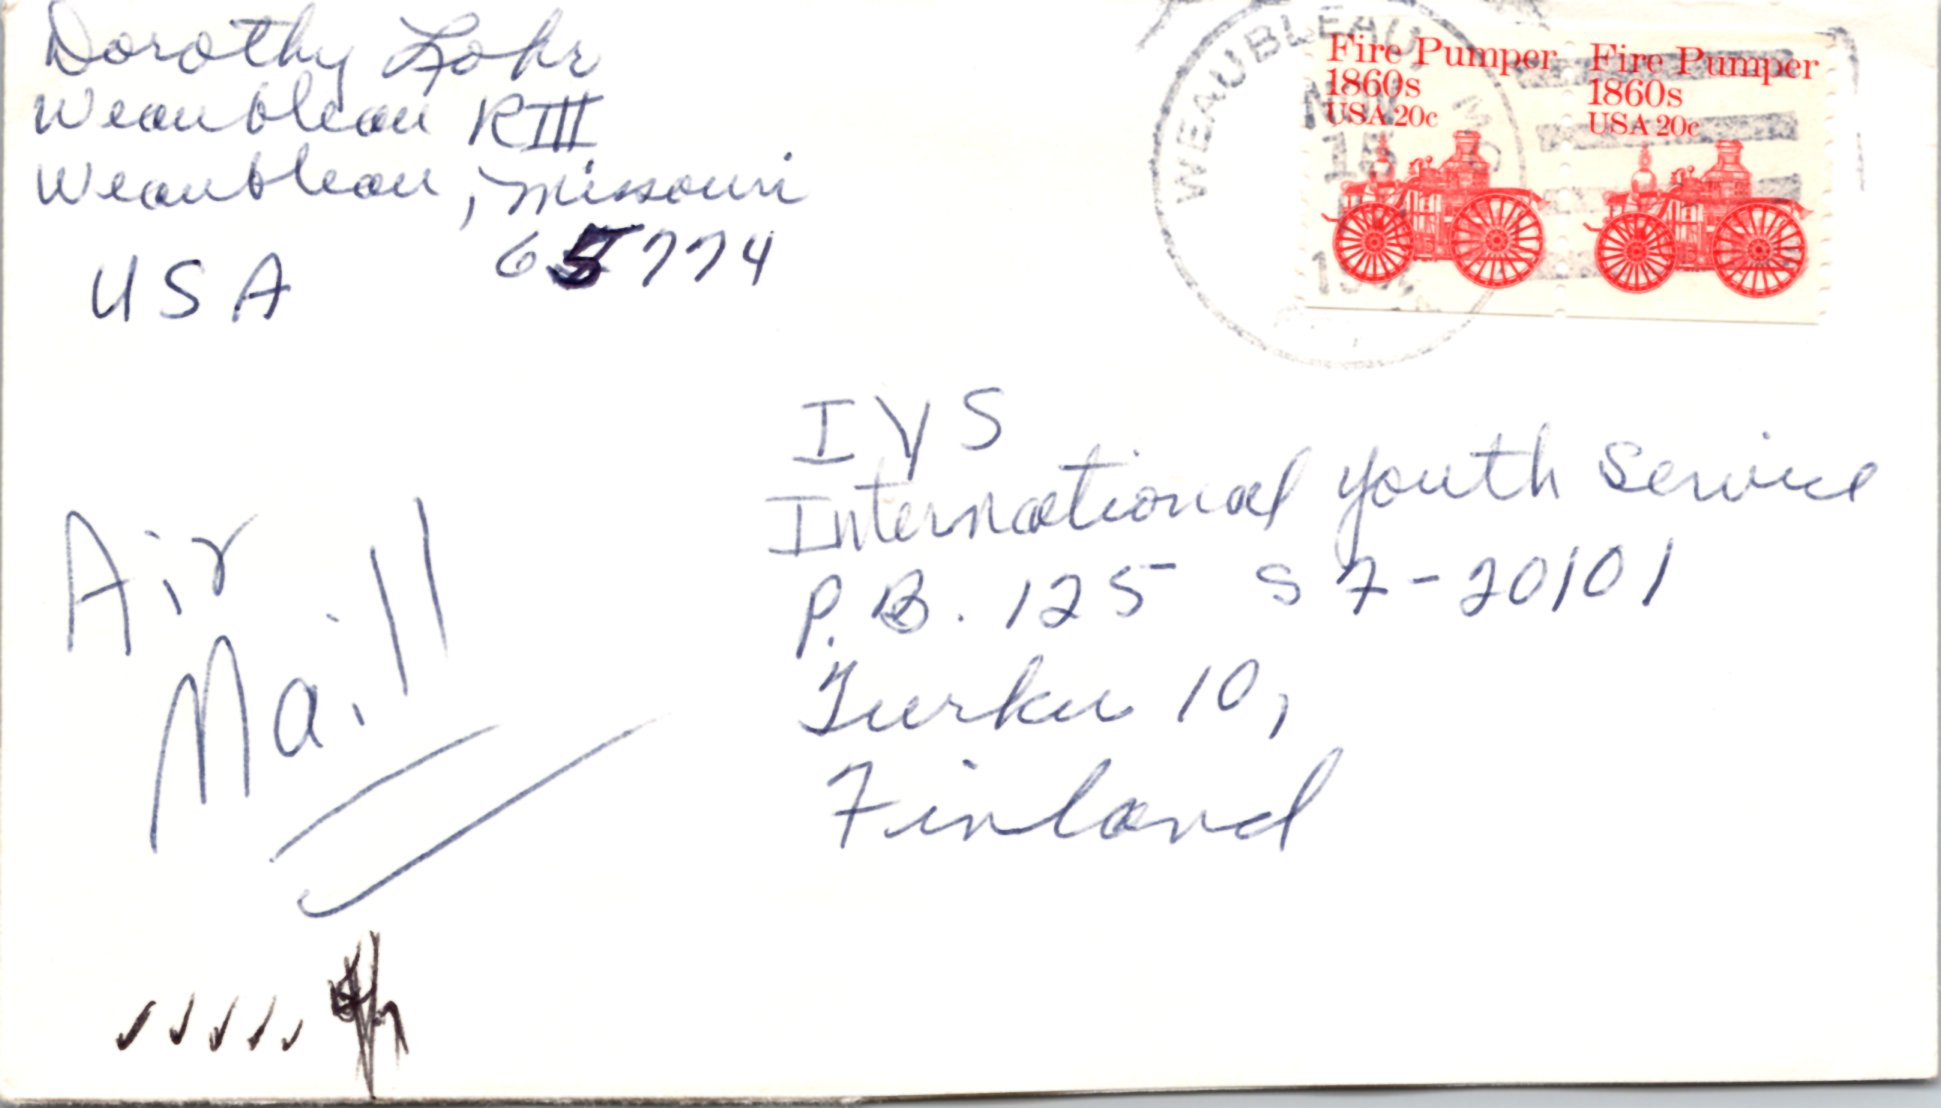 Dorothy Lohr
Weaubleau RIII
Weaubleau, Missouri
65774
USA
WEAUBLEAU, MO
NOV
15
Fire Pumper
1860s
USA 20c
Fire Pumper
1860s
USA 20c
IYS
International Youth Service
P.B. 125 S7-20101
Turku 10,
Finland
Air
Maill